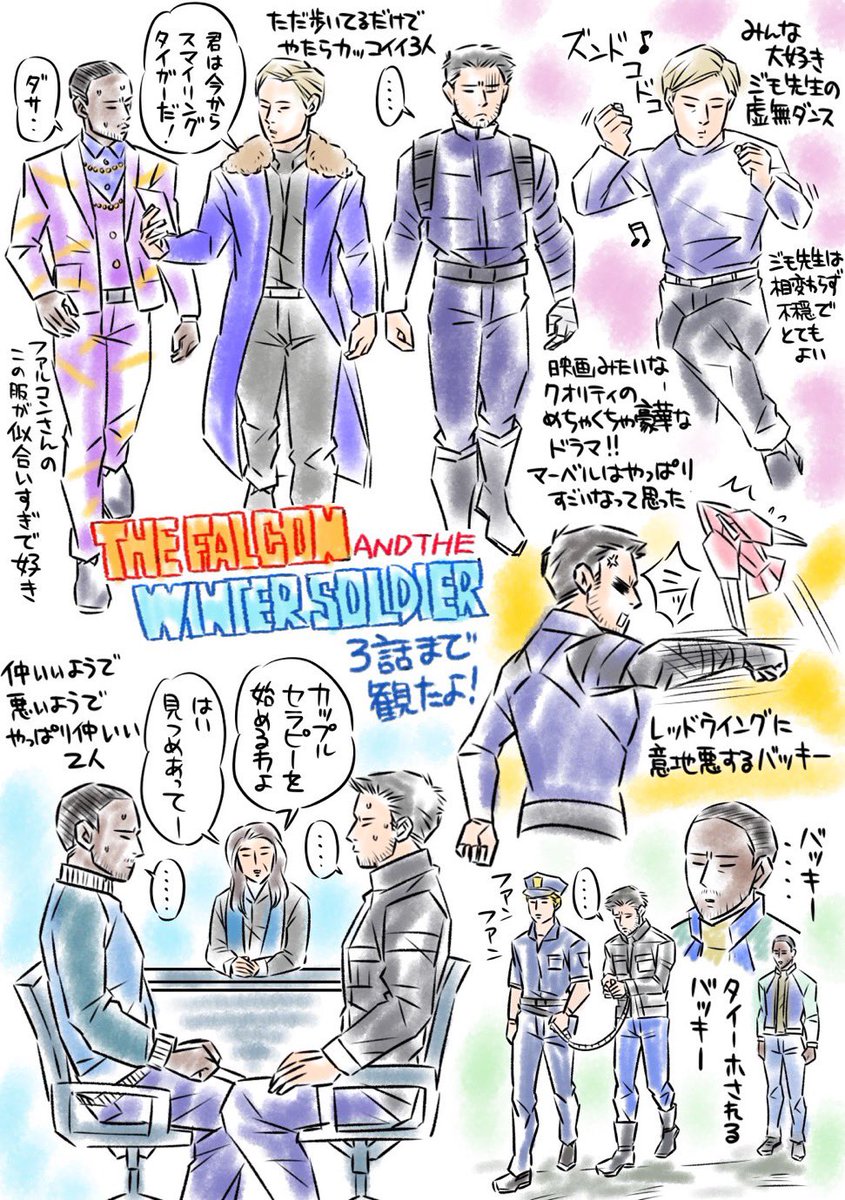 ただ歩いてるだけで
やたらカッコイイ3人
ダサ・・
君は今から
スマイリング
タイガーだ!
・・・・
ズンドコドコ♪
みんな
大好き
ジモ先生の
虚無ダンス
ジモ先生は
相変わらず
不穏で
とても
よい
ファルコンさんの
この服が似合いすぎで好き
映画みたいな
クオリティの
めちゃくちゃ豪華な
ドラマ!!
マーベルはやっぱり
すごいなって思った
THE FALCON AND THE
WINTER SOLDIER
3話まで
観たよ!
バシッ
レッドウイングに
意地悪するバッキー
仲いいようで
悪いようで
やっぱり仲いい
2人
カップル
セラピーを
始めるわよ
はい
見つめあってー
・・・・
・・・・
ファン
ファン
・・・・
バッキー・・・・
タイーホされる
バッキー